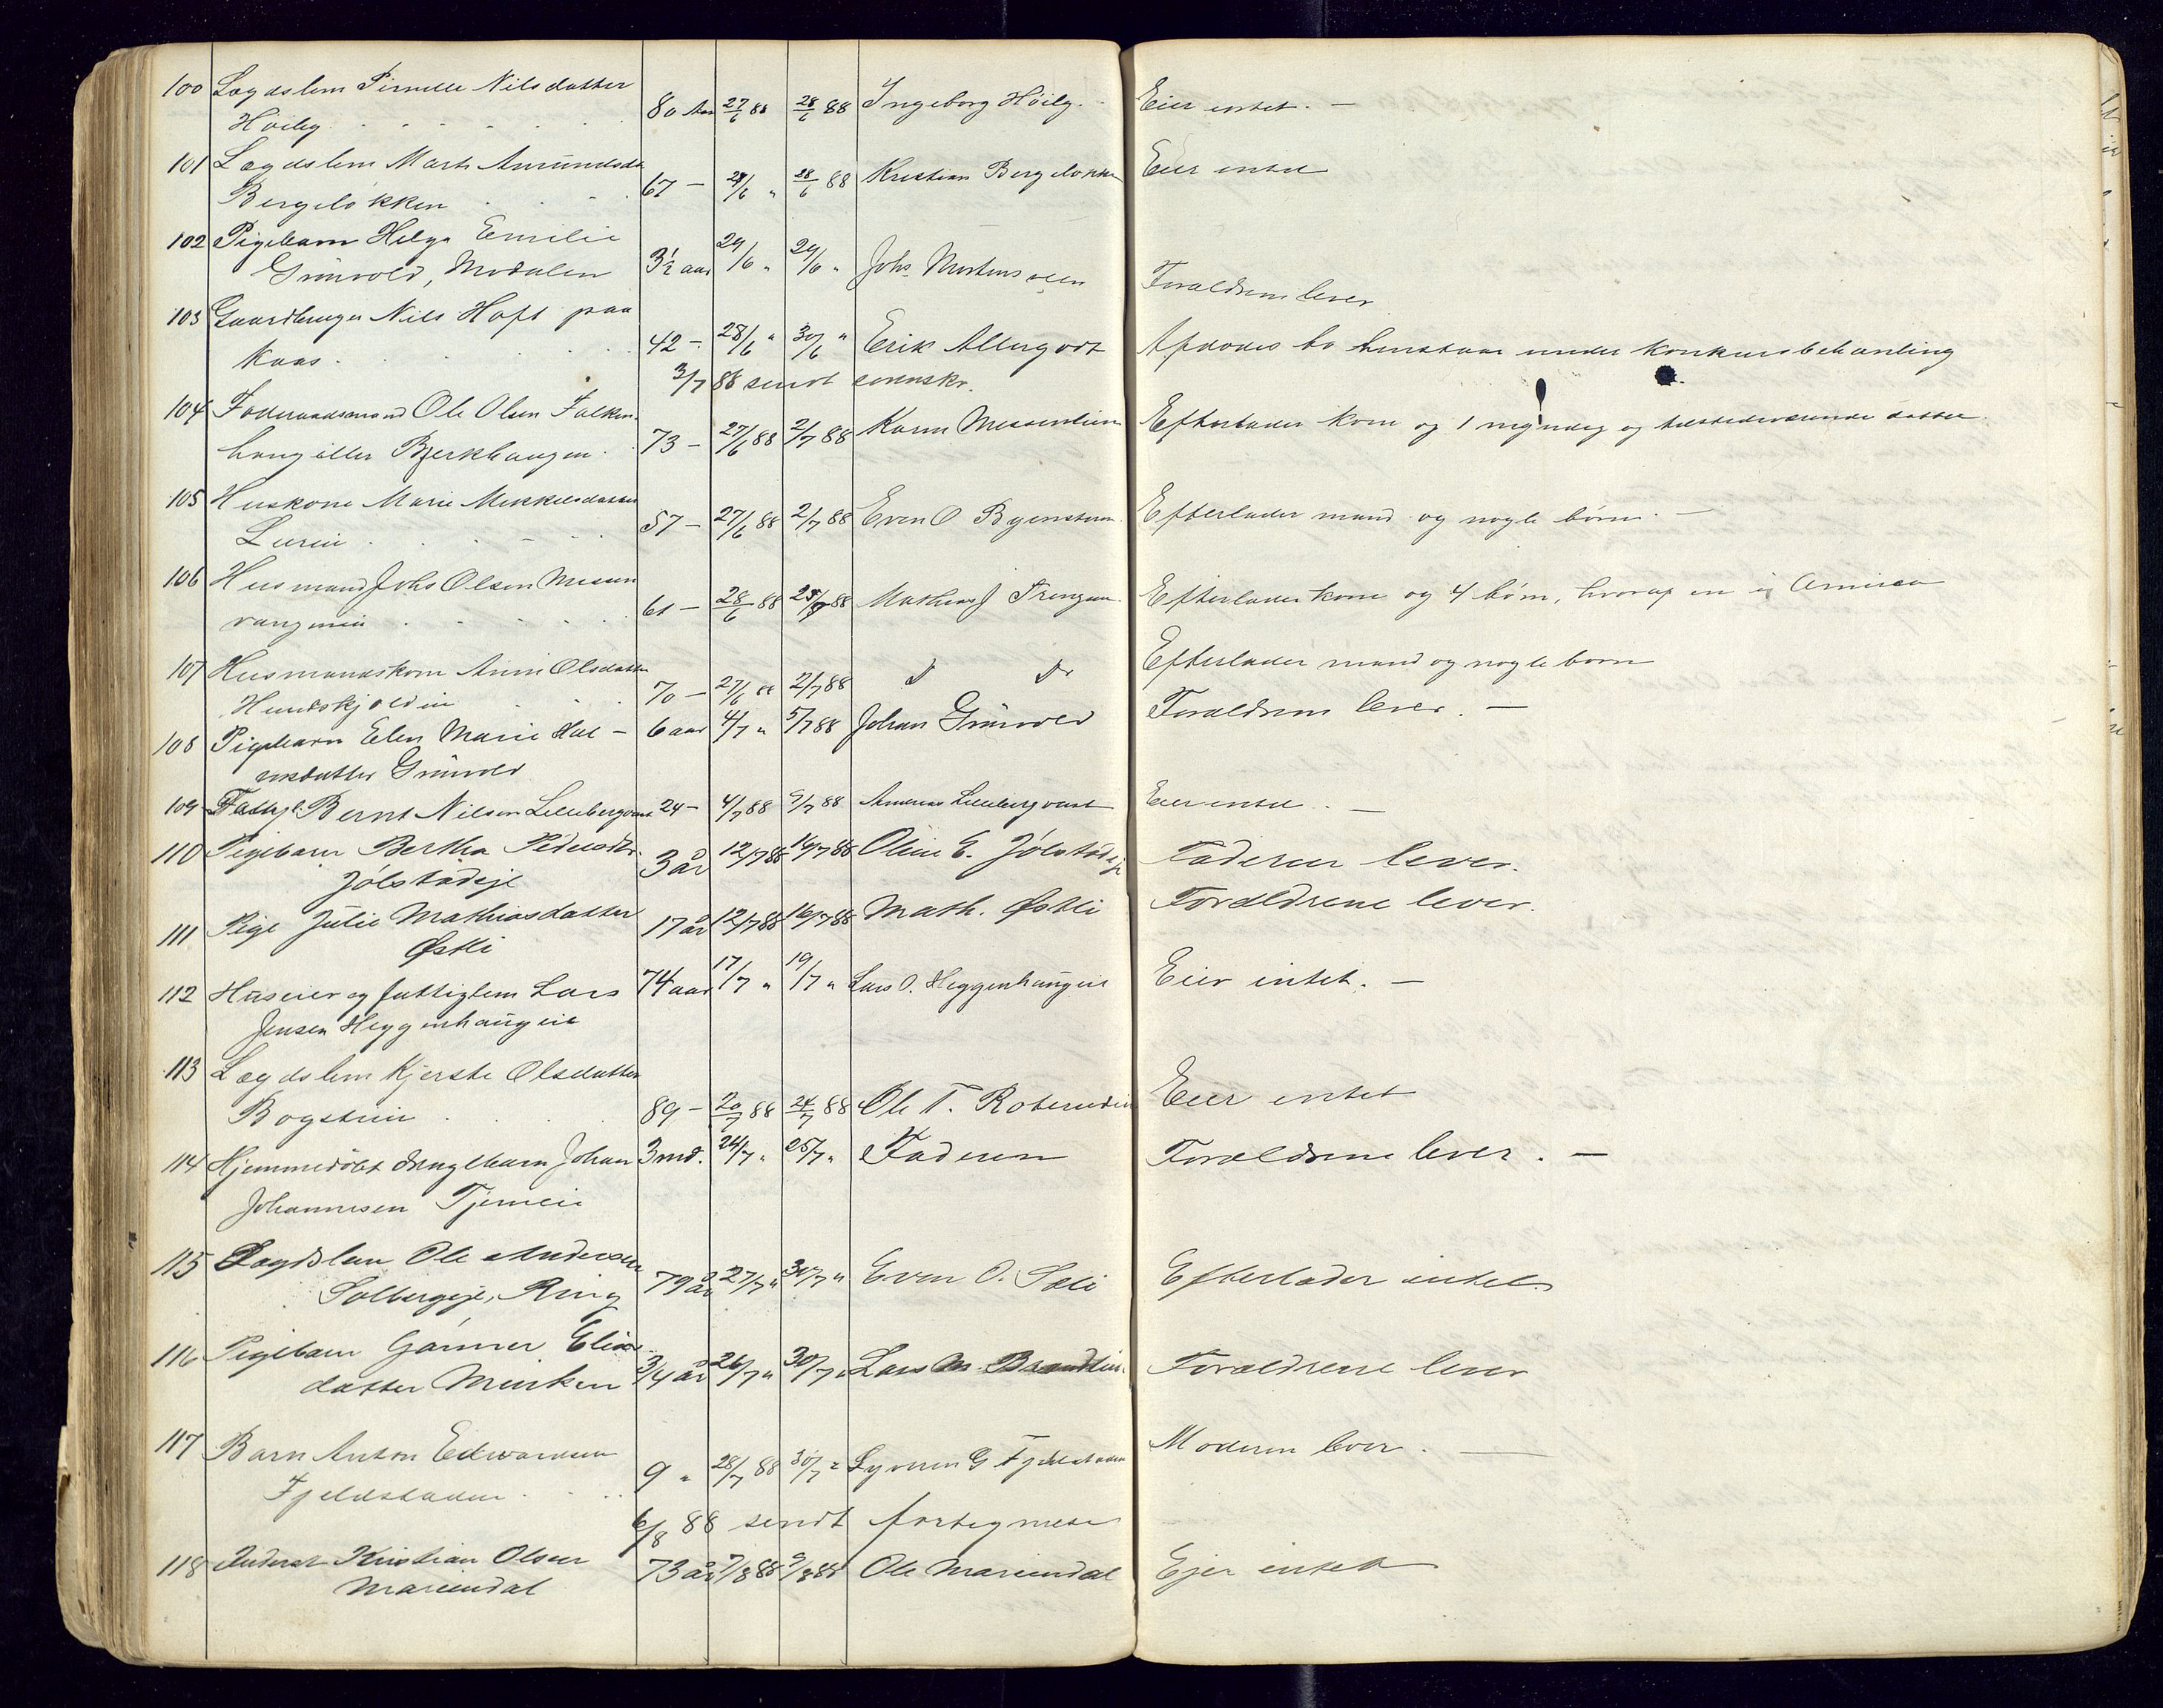 100 Lægdslem Pernille Nilsdatter
Høily 80 Aar 27/6 88 28/6 88 Ingeborg Høily. Eier intet. —
101 Lægdslem Marte Amundsda
Bergeløkken 67 — 28/6 88 Kristian Bergeløkken Eier intet
102 Pigebarn Helga Emilie
Grünvold, Modalen 3½ aar 29/6 " 29/6 " Johs Mortensveen Forældrene lever
103 Gaardbruger Nils Hoft paa
Kaas 42 — 28/6 " 30/6 " Erik Allergodt Afdødes bo henstaar under konkursbehandling
3/7 88 sendt
104 Føderaadsmand Ole Olsen Falken
haug eller Bjerkhaugen 73 — 27/6 88 2/7 88 Karen Messenlien Efterlader kone og 1 myndig og tilstedeværende datter
105 Huskone Marie Mikkelsdatter
Lurin 57 — 27/6 88 2/7 88 Even O Byenstuen Efterlader mand og nogle børn. —
106 Husmand Johs Olsen Messen
vangeie 61 — 28/6 88 88 Mathias J Efterlader kone og 4 børn, hvoraf en i Amerika
107 Husmandskone Anne Olsdatter
Hundskjoldeie 70 — 27/6 88 2/7 88 D Do Efterlader mand og nogle børn
108 Pigebarn Elen Marie Hal — 6 aar 4/7 " 5/7 88 Johan Grünvold Forældrene lever. —
vorsdatter Grünvold
109 Fattigl. Bernt Nilsen Lillebergvent 24 — 4/7 88 9/7 88 Andreas Lillebergvent Eier intet. —
110 Pigebarn Bertha Pedersdtr. 3 år 12/7 88 16/7 88 Oline E. Jølstadeje Faderen lever.
Jølstadeje
111 Pige Julie Mathiasdatter 17 år 12/7 88 16/7 88 Math. Østli Forældrene lever.
Østli
112 Huseier og fattiglem Lars 74 aar 17/7 " 19/7 " Lars O. Heggenhaugeie Eier intet. —
Jensen Heggenhaugeie
113 Lægdslem Kjerste Olsdatter
Bogstuen 89 — 20/7 88 24/7 88 Ole T. Eier intet
114 Hjemmedøbt drengebarn Johan 3 md. 24/7 " 25/7 " Faderen Forældrene lever. —
Johannesen Tjerneie
115 Lægdslem Ole Andersen
Solbergeje, Ring 79 år 27/7 " 30/7 " Even O. Sæli Efterlader intet.
116 Pigebarn Gunner Elias
datter Mirken 3/4 år 26/7 " 30/7 " Lars M. Brandlien Forældrene lever
117 Barn Anton Edvardsen
Fjeldstaden 9 " 28/7 88 30/7 " Syverin G Fjeldstaden Moderen lever. —
6/8 88 sendt fortegnelse
118 Inderst Kristian Olsen 73 år 7/8 88 9/8 88 Ole Mariendal Ejer intet
Mariendal